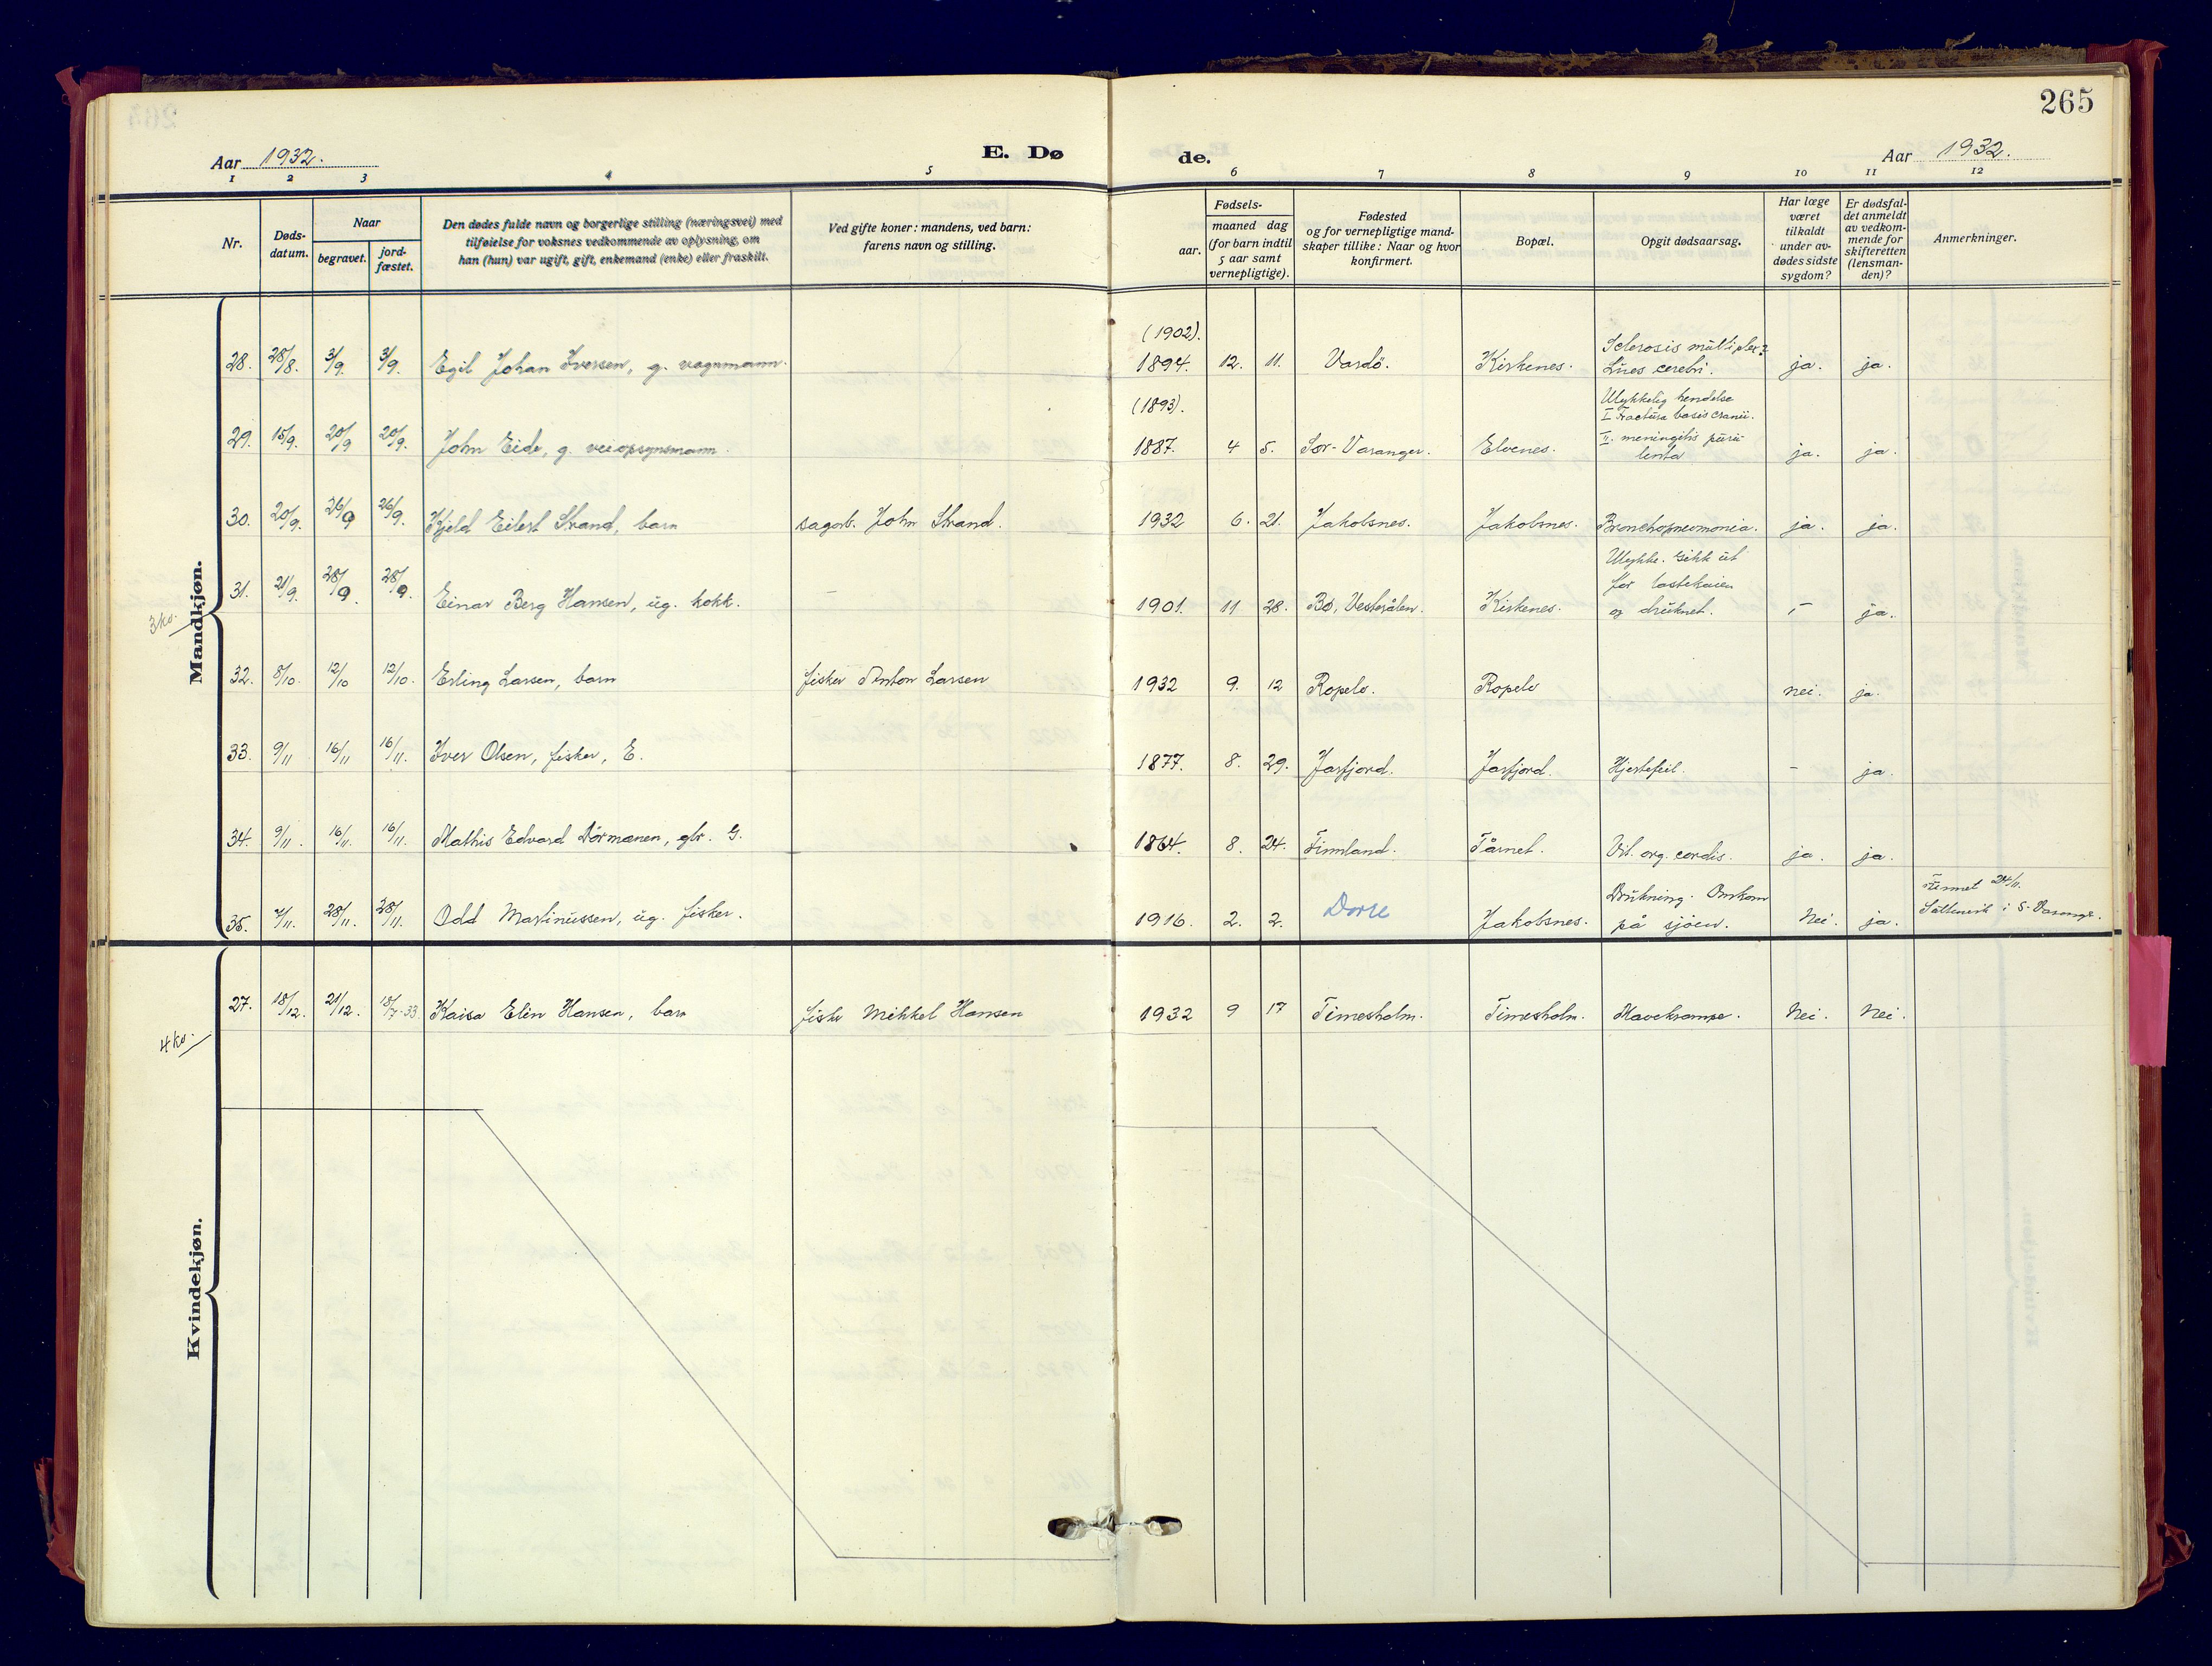 265
Aar 1932.
E. Dø
de.
Aar 1932.
1 2 3 4 5 6 7 8 9 10 11 12
Nr.
Døds-
datum.
Naar
begravet.
jord-
fæstet.
Den dødes fulde navn og borgerlige stilling (næringsvei) med
tilføielse for voksnes vedkommende av oplysning, om
han (hun) var ugift, gift, enkemand (enke) eller fraskilt.
Ved gifte koner: mandens, ved barn:
farens navn og stilling.
Fødsels-
aar.
maaned dag
(for barn indtil
5 aar samt
vernepligtige).
Fødested
og for vernepligtige mand-
skaper tillike: Naar og hvor
konfirmert.
Bopæl.
Opgit dødsaarsag.
Har læge
været
tilkaldt
under av-
dødes sidste
sygdom?
Er dødsfal-
det anmeldt
av vedkom-
mende for
skifteretten
(lensman-
den)?
Anmerkninger.
Mandkjøn.
3 ko.
(1902). Sclerosis multiplex?
28. 28/8. 3/9. 3/9. Egil Johan Iversen, g. vognmann. 1894. 12. 11. Vardö. Kirkenes. Lües cerebri. ja. ja.
(1893). Ulykkelig hendelse
I Fractüra basis cranii.
29. 15/9. 20/9 20/9. John Eide, g. veiopsynsmann. 1887. 4 5. Sør-Varanger. Elvenes. II. meningitis pürü-
lenta ja. ja.
30. 20/9. 26/9 26/9. Kjeld Eilert Strand, barn sagarb. John Strand. 1932 6. 21. Jakobsnes. Jakobsnes. Bronchopneomonia. ja. ja.
Ulykke. Gikk üt
for lastekaien
31. 21/9. 28/9. 28/9. Einar Berg Hansen, üg. kokk. – 1901. 11 28. Bö, Vesterålen. Kirkenes. og drüknet. – ja.
32. 8/10. 12/10 12/10. Erling Larsen, barn fisker Anton Larsen 1932 9. 12 Ropelv. Ropelv nei. ja.
33. 9/11 16/11 16/11. Iver Olsen, fisker, E. 1877. 8. 29. Jarfjord. Jarfjord. Hjertefeil. – ja.
34. 9/11. 16/11. 16/11. Mathis Edvard Dörmænen, gbr. G. 1864. 8. 24. Finnland. Tårnet. Vit. org. cordis. ja. ja.
Drükning. Omkom Fünnet 24/11.
35. 7/11. 28/11. 28/11. Odd Martinüssen, üg. fisker. 1916. 2. 2. Jakobsnes. på sjöen. Nei. ja. i S-Varanger.
Kvindekjøn.
4 ko.
27. 18/12. 21/12. 18/7-33. Kaisa Elin Hansen, barn fisker Mikkel Hansen 1932 9 17 Timesholm. Timesholm. Mavekrampe. Nei. Nei.